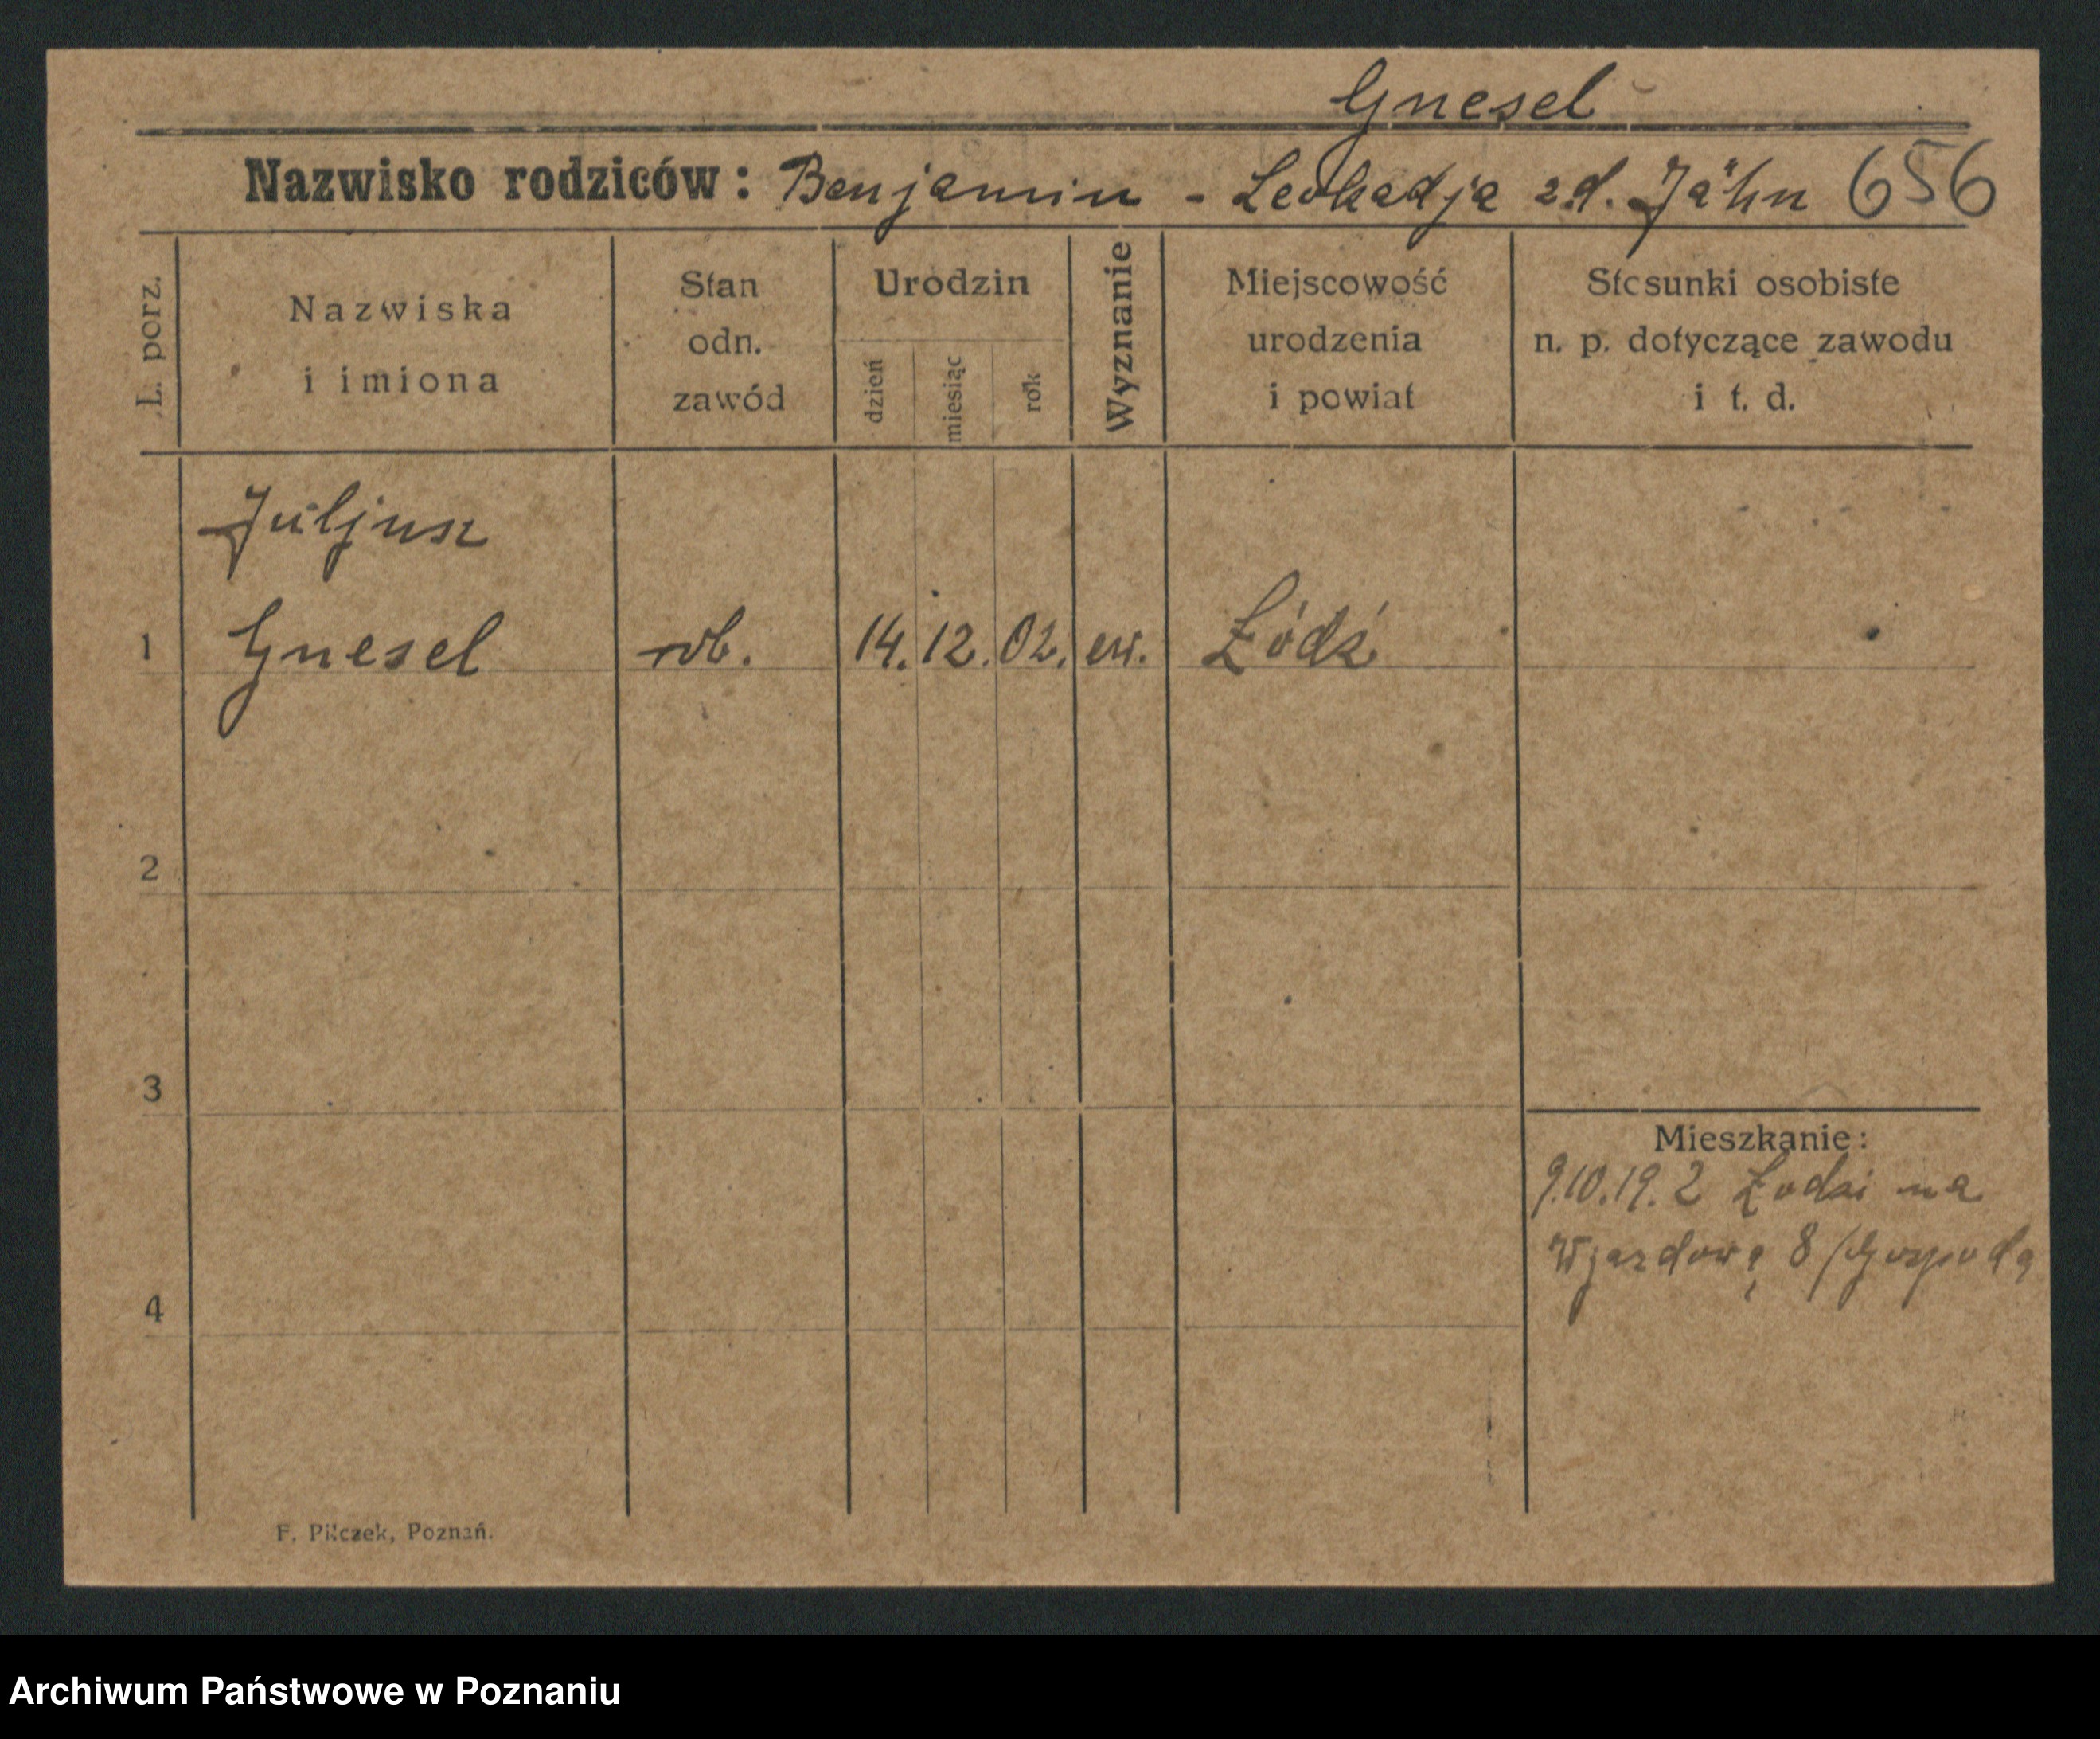 Gnesel
Nazwisko rodziców: Benjamin - Leokadja z d. Jähn 656
L. porz.
Nazwiska
i imiona
Stan
odn.
zawód
Urodzin
dzień
miesiąc
rok
Wyznanie
Miejscowość
urodzenia
i powiat
Stosunki osobiste
n. p. dotyczące zawodu
i t. d.
Juljusz
1 Gnesel rob. 14. 12. 02. ew. Łódź
2
3
4
Mieszkanie:
9.10.19. z Łodzi na
Wjazdową 8 /Gospoda
F. Pilczek, Poznań.
Archiwum Państwowe w Poznaniu